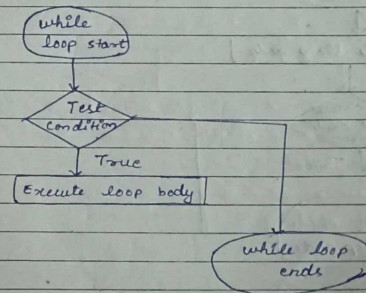 while
loop start
Test
condition
True
Execute loop body
while loop
ends